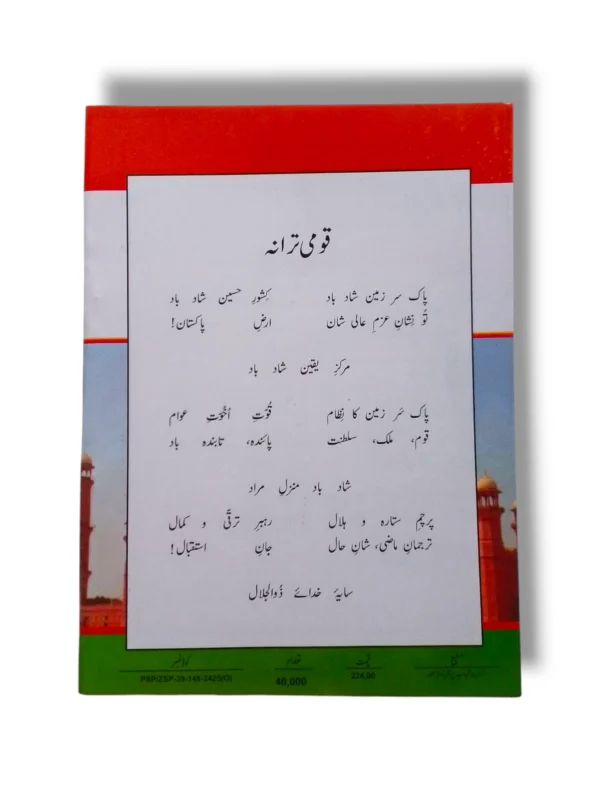 قومی ترانہ
پاک سر زمین شاد باد کِشورِ حسین شاد باد
تُو نِشانِ عزمِ عالی شان ارضِ پاکستان!
مرکزِ یقین شاد باد
پاک سَر زمین کا نِظام قُوّتِ اُخوّتِ عوام
قوم، ملک، سلطنت پائندہ، تابندہ باد
شاد باد منزلِ مراد
پرچمِ ستارہ و ہلال رہبرِ ترقّی و کمال
ترجمانِ ماضی، شانِ حال جانِ استقبال!
سایۂ خدائے ذُوالجلال
قیمت تعداد کوڈ نمبر
224.00 40,000